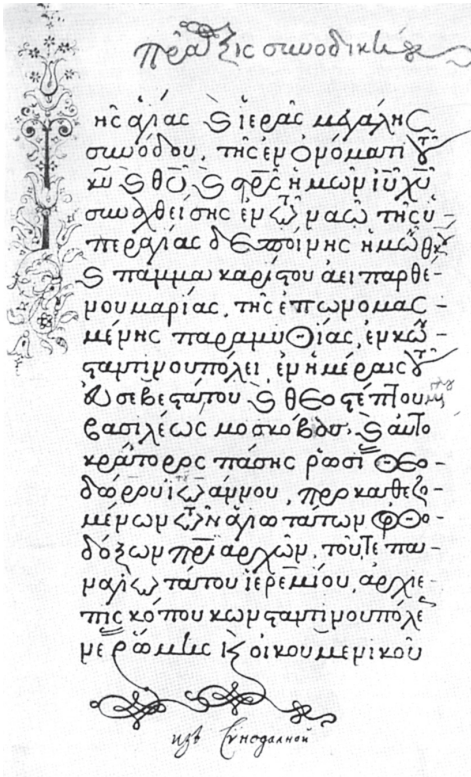 πρᾶξις συνοδικὴ
ῆς ἁγίας καὶ ἱερᾶς μεγάλης
συνόδου, τῆς ἐν ὀνόματι τοῦ
κῦ καὶ θῦ καὶ σρ̅ς ἡμῶν ἰῦ χῦ
συναχθείσης ἐν τῶ ναῶ τῆς ὑ-
περαγίας δεσποίνης ἡμῶν θκου
καὶ παμμακαρίστου ἀειπαρθέ-
νου μαρίας, τῆς ἐπωνομασ-
μένης παραμυθίας, ἐν κων-
σταντινουπόλει ἐν ἡμέραις τοῦ
εὐσεβεστάτου καὶ θεοστέπτου
βασιλέως μοσκόβου, καὶ αὐτο
κράτορος πάσης ῥωσί θεο-
δώρου ἰωάννου, προκαθεζο-
μένων τῶν ἁγιωτάτων ὀρθο-
δόξων πριαρχῶν, τοῦτε πα-
ναγιωτάτου ἱερεμίου, ἀρχιε-
πισκόπου κωνσταντινουπόλε
νέ ῥώμης καὶ οἰκουμενικοῦ
изъ Синодалной